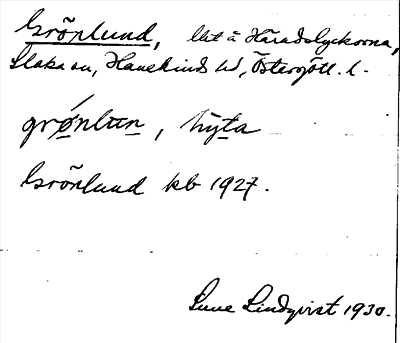 Grönlund, lht å Häradslyckorna,
Slaka sn, Hanekinds hd, Östergötl. l.
grǿnlun, hy̨ta
Grönlund kb 1927.
Sune Lindqvist 1930.